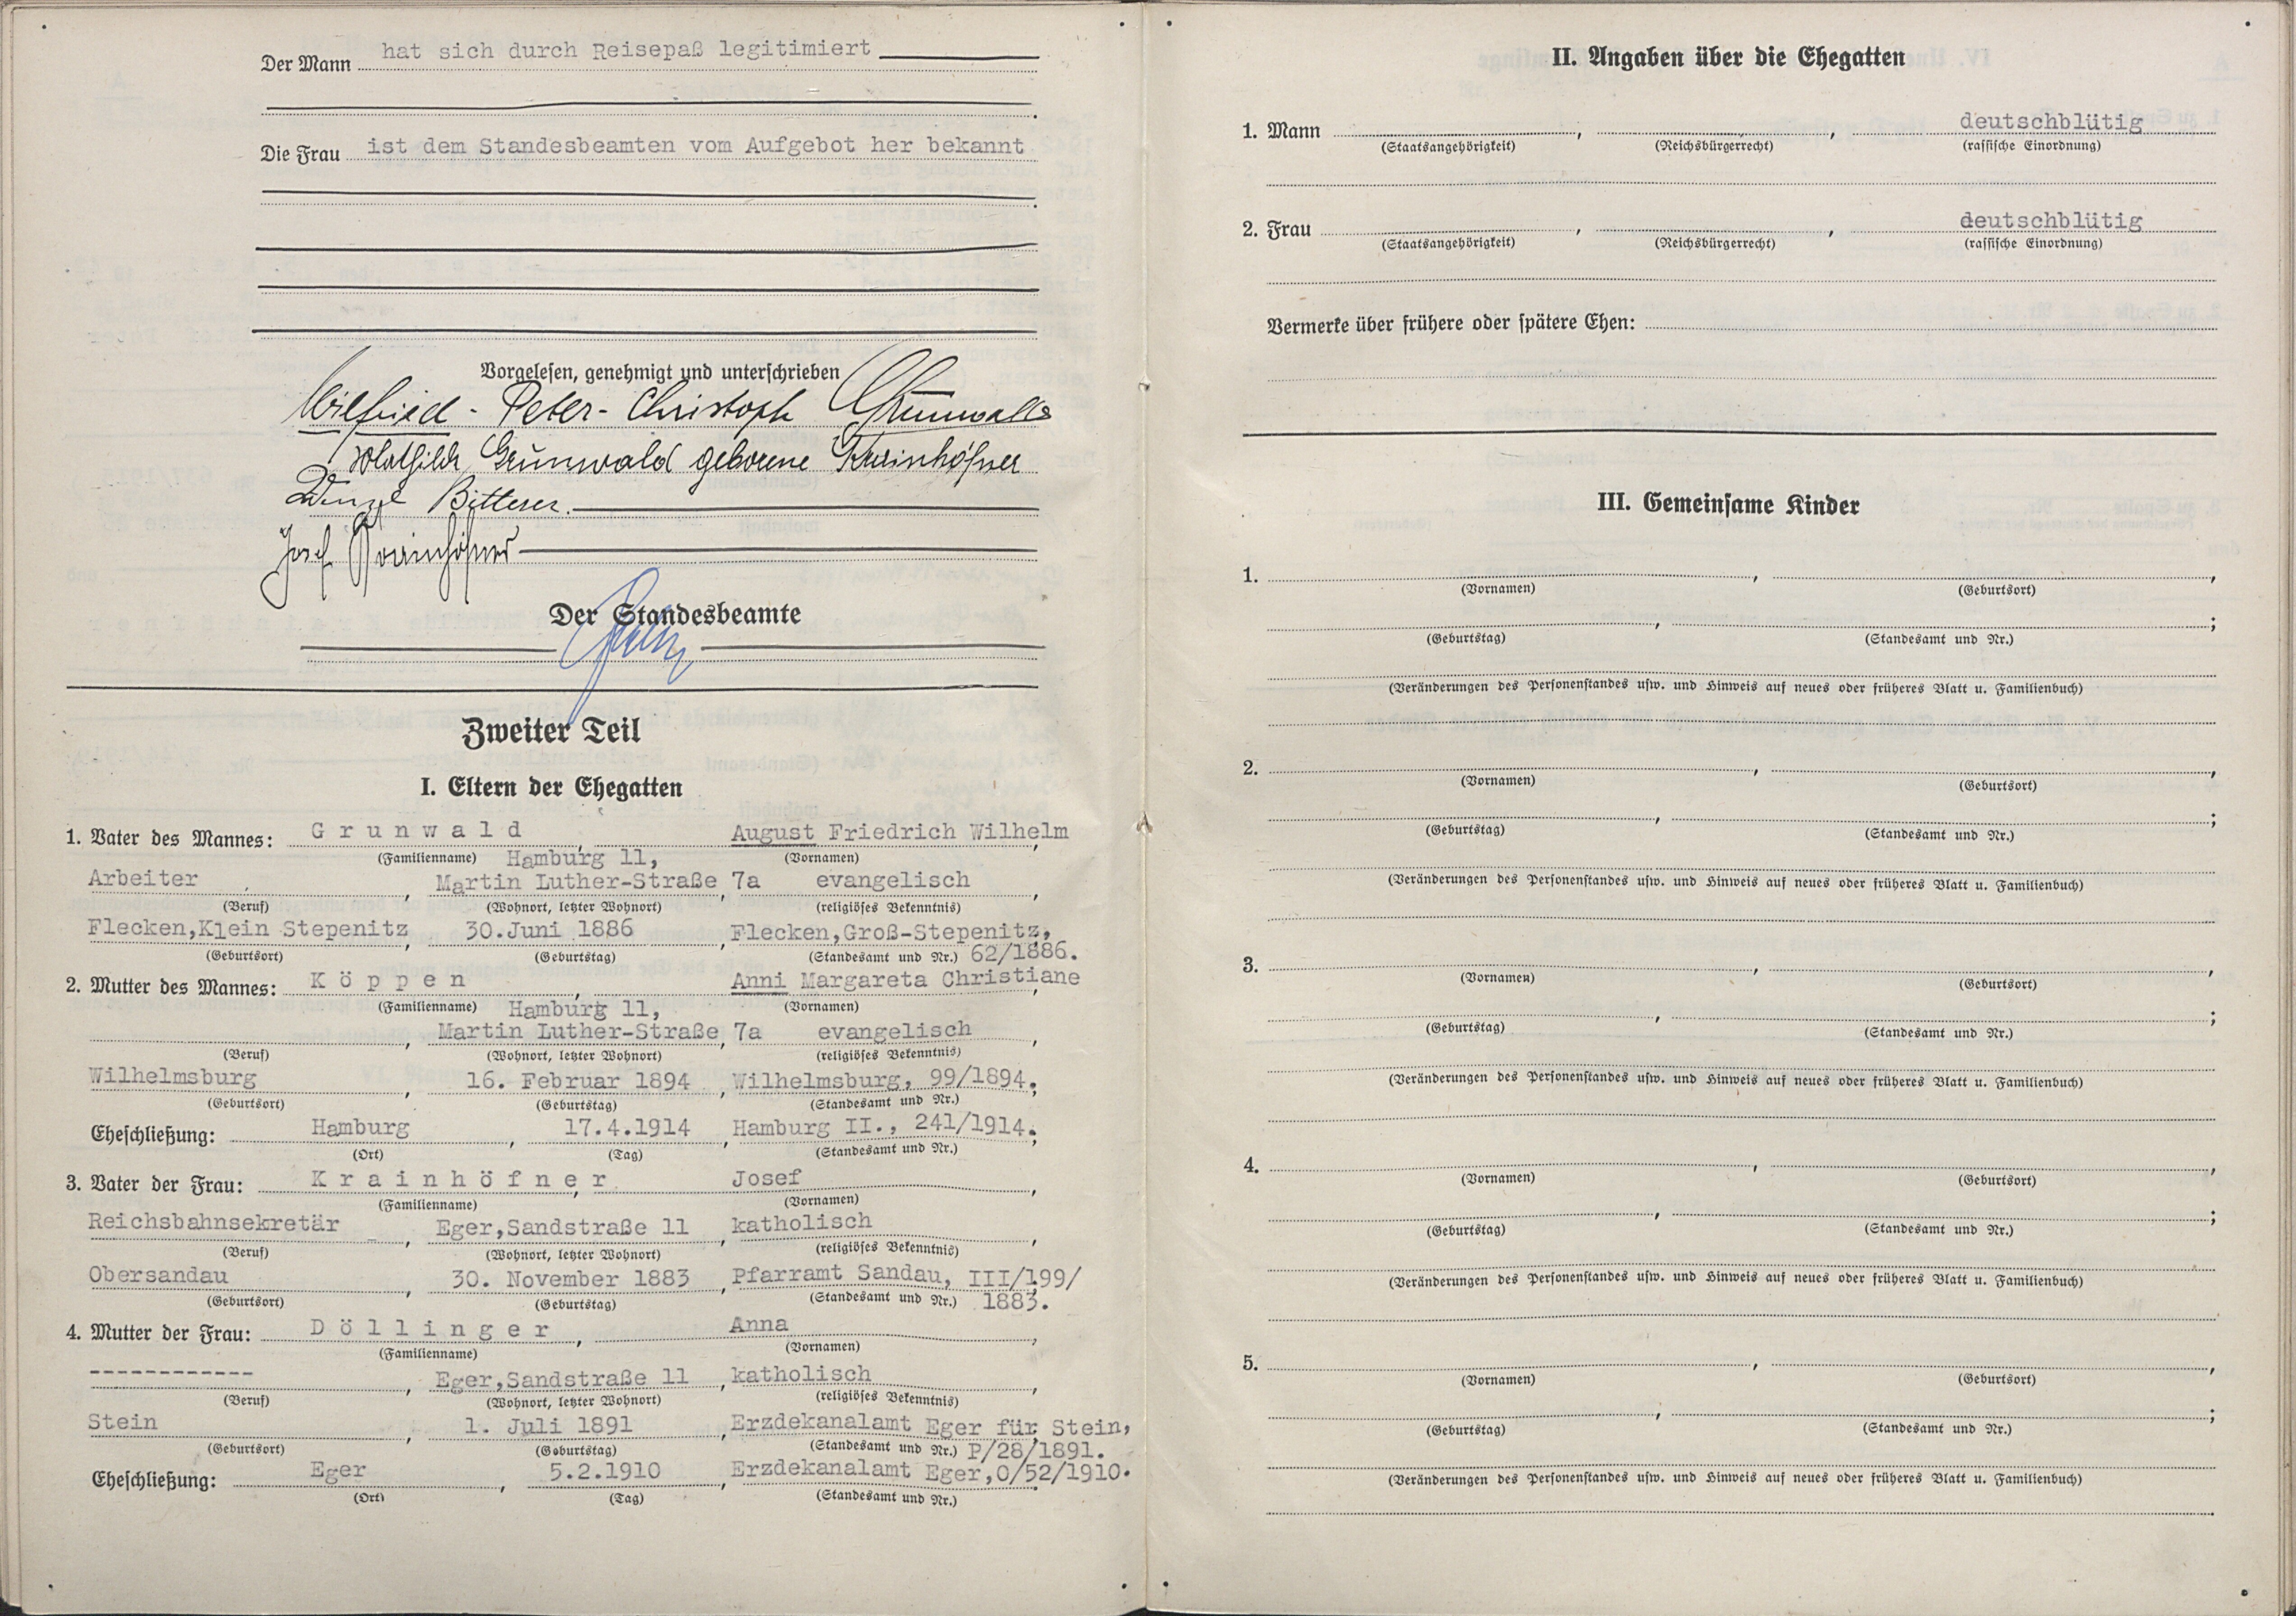 Der Mann hat sich durch Reisepaß legitimiert
Die Frau ist dem Standesbeamten vom Aufgebot her bekannt
Vorgelesen, genehmigt und unterschrieben
Wilfried - Peter - Christoph Grunwald
Mathilde Grunwald geborene Krainhöfner
Wenzl Bitterer.
Josef Krainhöfner
Der Standesbeamte
Zweiter Teil
I. Eltern der Ehegatten
1. Vater des Mannes: Grunwald, August Friedrich Wilhelm,
(Familienname) Hamburg 11, (Vornamen)
Arbeiter, Martin Luther-Straße 7a evangelisch,
(Beruf) (Wohnort, letzter Wohnort) (religiöses Bekenntnis)
Flecken,Klein Stepenitz, 30.Juni 1886, Flecken,Groß-Stepenitz,
(Geburtsort) (Geburtstag) (Standesamt und Nr.) 62/1886.
2. Mutter des Mannes: Köppen, Anni Margareta Christiane,
(Familienname) Hamburg 11, (Vornamen)
, Martin Luther-Straße 7a evangelisch,
(Beruf) (Wohnort, letzter Wohnort) (religiöses Bekenntnis)
Wilhelmsburg, 16. Februar 1894, Wilhelmsburg, 99/1894.;
(Geburtsort) (Geburtstag) (Standesamt und Nr.)
Eheschließung: Hamburg, 17.4.1914, Hamburg II., 241/1914.;
(Ort) (Tag) (Standesamt und Nr.)
3. Vater der Frau: Krainhöfner, Josef,
(Familienname) (Vornamen)
Reichsbahnsekretär, Eger,Sandstraße 11, katholisch,
(Beruf) (Wohnort, letzter Wohnort) (religiöses Bekenntnis)
Obersandau, 30. November 1883, Pfarramt Sandau, III/199/
(Geburtsort) (Geburtstag) (Standesamt und Nr.) 1883.
4. Mutter der Frau: Döllinger, Anna,
(Familienname) (Vornamen)
------------, Eger,Sandstraße 11, katholisch,
(Beruf) (Wohnort, letzter Wohnort) (religiöses Bekenntnis)
Stein, 1. Juli 1891, Erzdekanalamt Eger für Stein,
(Geburtsort) (Geburtstag) (Standesamt und Nr.) P/28/1891.
Eheschließung: Eger, 5.2.1910, Erzdekanalamt Eger,O/52/1910.
(Ort) (Tag) (Standesamt und Nr.)
II. Angaben über die Ehegatten
1. Mann , , deutschblütig
(Staatsangehörigkeit) (Reichsbürgerrecht) (rassische Einordnung)
2. Frau , , deutschblütig
(Staatsangehörigkeit) (Reichsbürgerrecht) (rassische Einordnung)
Vermerke über frühere oder spätere Ehen:
III. Gemeinsame Kinder
1. , ,
(Vornamen) (Geburtsort)
, ;
(Geburtstag) (Standesamt und Nr.)
(Veränderungen des Personenstandes usw. und Hinweis auf neues oder früheres Blatt u. Familienbuch)
2. , ,
(Vornamen) (Geburtsort)
, ;
(Geburtstag) (Standesamt und Nr.)
(Veränderungen des Personenstandes usw. und Hinweis auf neues oder früheres Blatt u. Familienbuch)
3. , ,
(Vornamen) (Geburtsort)
, ;
(Geburtstag) (Standesamt und Nr.)
(Veränderungen des Personenstandes usw. und Hinweis auf neues oder früheres Blatt u. Familienbuch)
4. , ,
(Vornamen) (Geburtsort)
, ;
(Geburtstag) (Standesamt und Nr.)
(Veränderungen des Personenstandes usw. und Hinweis auf neues oder früheres Blatt u. Familienbuch)
5. , ,
(Vornamen) (Geburtsort)
, ;
(Geburtstag) (Standesamt und Nr.)
(Veränderungen des Personenstandes usw. und Hinweis auf neues oder früheres Blatt u. Familienbuch)